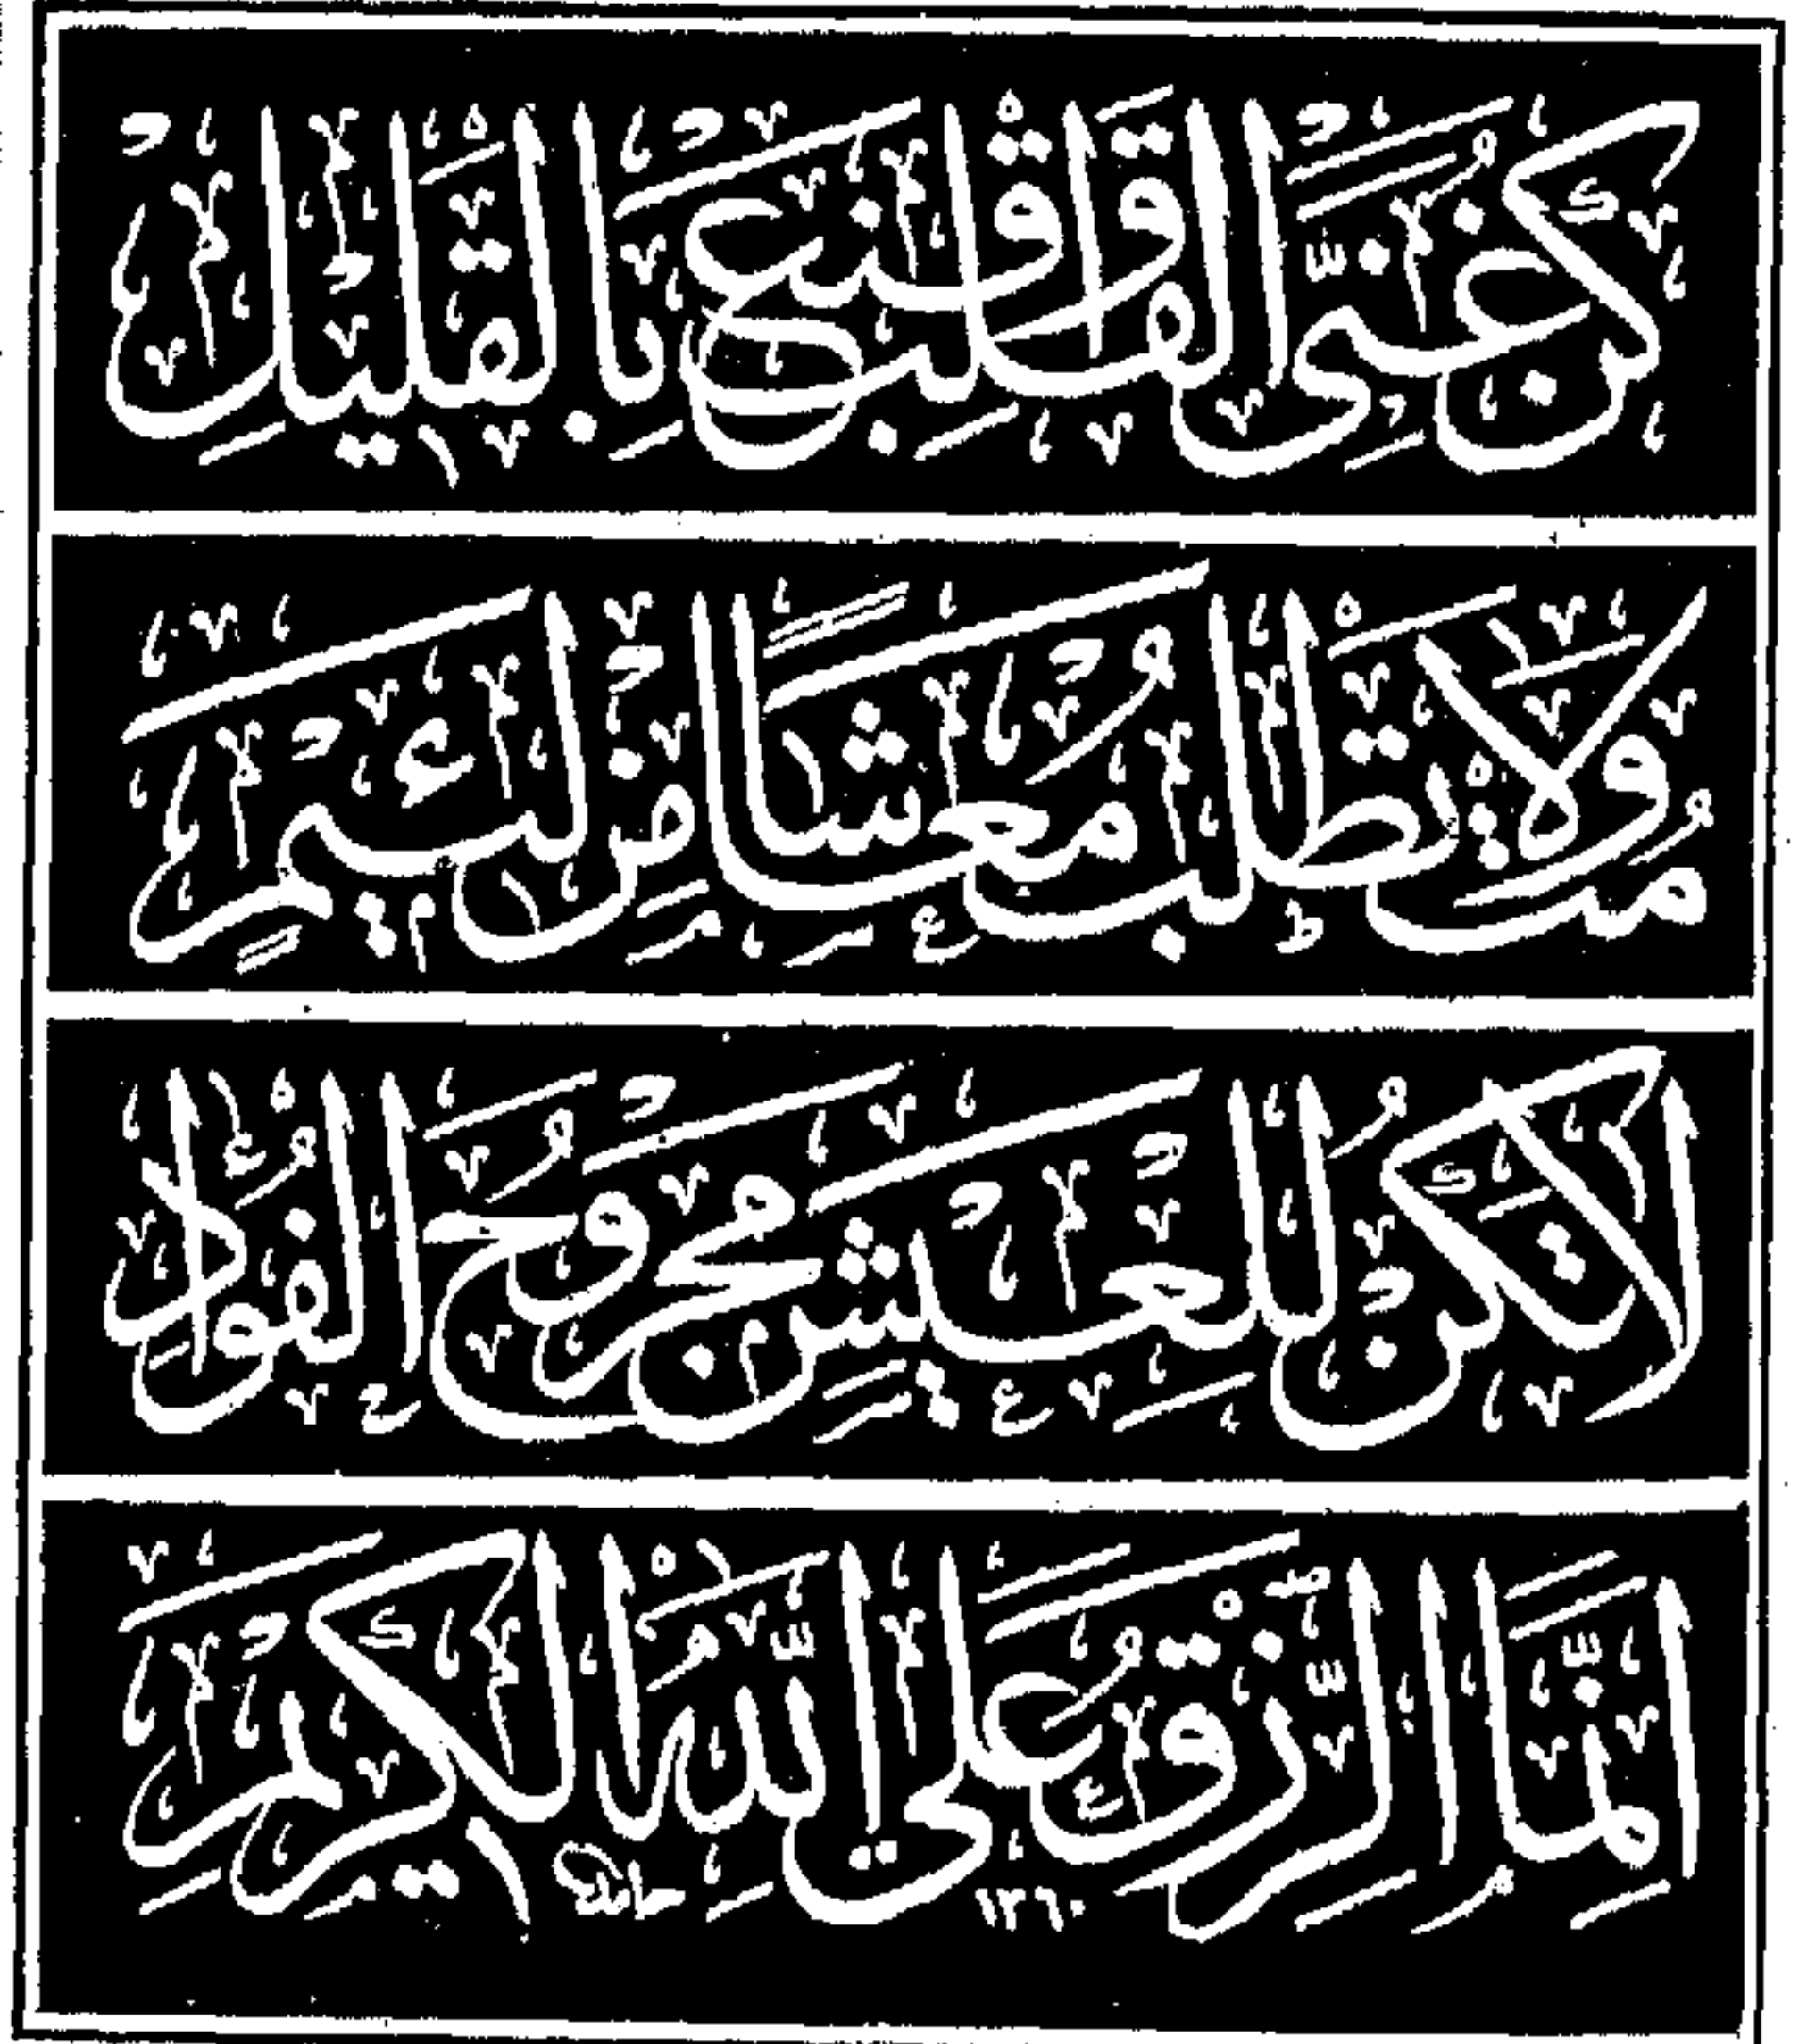 كُنْ غَنِيَّ الْقَلْبِ وَاقْنَعْ بِالْقَلِيلِ
مُتْ وَلَا تَطْلُبْ مَعَاشًا مِنْ لَئِيمٍ
لَا تَكُنْ لِلْعَيْشِ مَجْرُوحَ الْفُؤَادِ
إِنَّمَا الرِّزْقُ عَلَى اللهِ الْكَرِيمِ
١٣٦٠